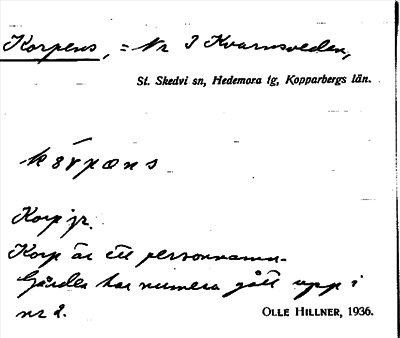 Korpens, = Nr 3 Kvarnsveden,
St. Skedvi sn, Hedemora tg, Kopparbergs län.
kårpæns
Korp jr.
Korp är ett personnamn.
Gården har numera gått upp i
nr 2. OLLE HILLNER, 1936.